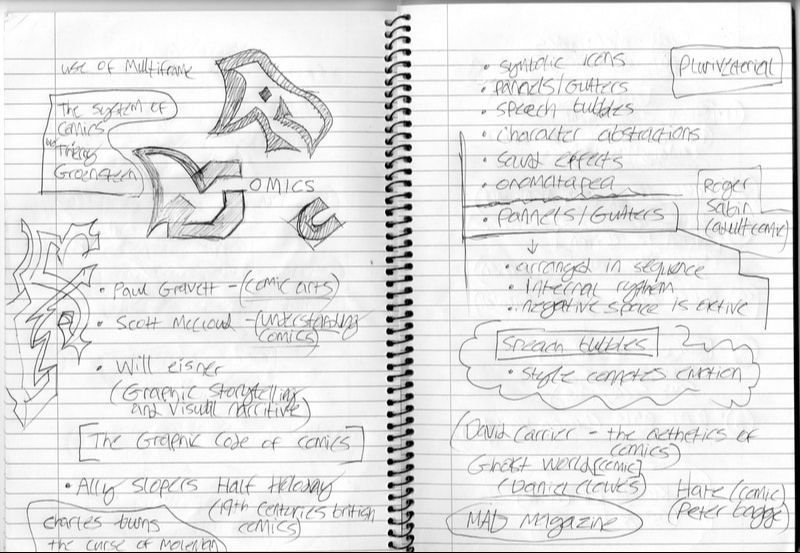 use of Multiframe
The system of
comics
Thierry
Groensteen
COMICS
C
• Paul Gravett - (comic arts)
• Scott McCloud - (understanding
comics)
• Will eisner
(Graphic storytelling
and visual narritive)
[The Graphic Code of comics]
• Ally slopers Half Holoday
(19th Centuries british
comics)
charles burns
the curse of
• symbolic icons
• pannels/Gutters
• speech bubbles
• character abstractions
• sound effects
• onomatapea
• pannels/Gutters
↓
• arranged in sequence
• Internal rythem
• negative space is active
Pluriveterial
Roger
Sabin
(adult comic)
Speach bubbles
• style connotes emotion
(David Carrier - the aethetics of
comics)
Ghost World (comic)
(Daniel Clowes)
Hate (comic)
(Peter bagge)
MAD Magazine